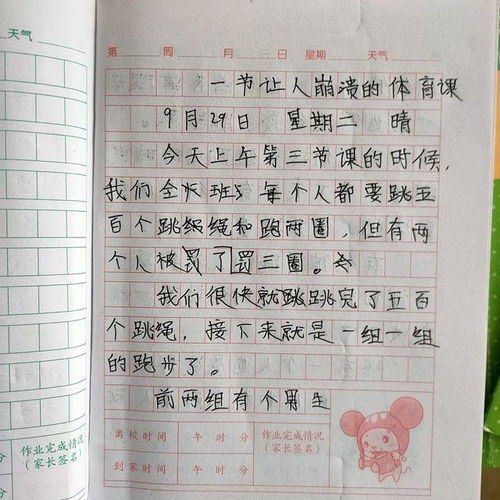 天气
第 周 月 日 星期 天气
一节让人崩溃的体育课
9月29日 星期二 晴
今天上午第三节课的时候,
我们全班每个人都要跳五
百个跳绳和跑两圈,但有两
个人被罚了罚三圈。
我们很快就跳跳完了五百
个跳绳,接下来就是一组一组
的跑步了。
前两组有个男生
离校时间 午 时 分 作业完成情况
(家长签名)
到家时间 午 时 分
作业完成情况
(家长签名)
分